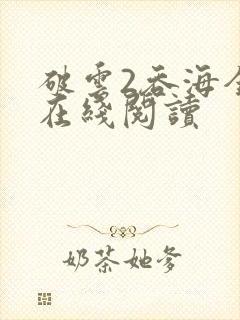 破雲2吞海全
在綫閱讀
奶茶她爹